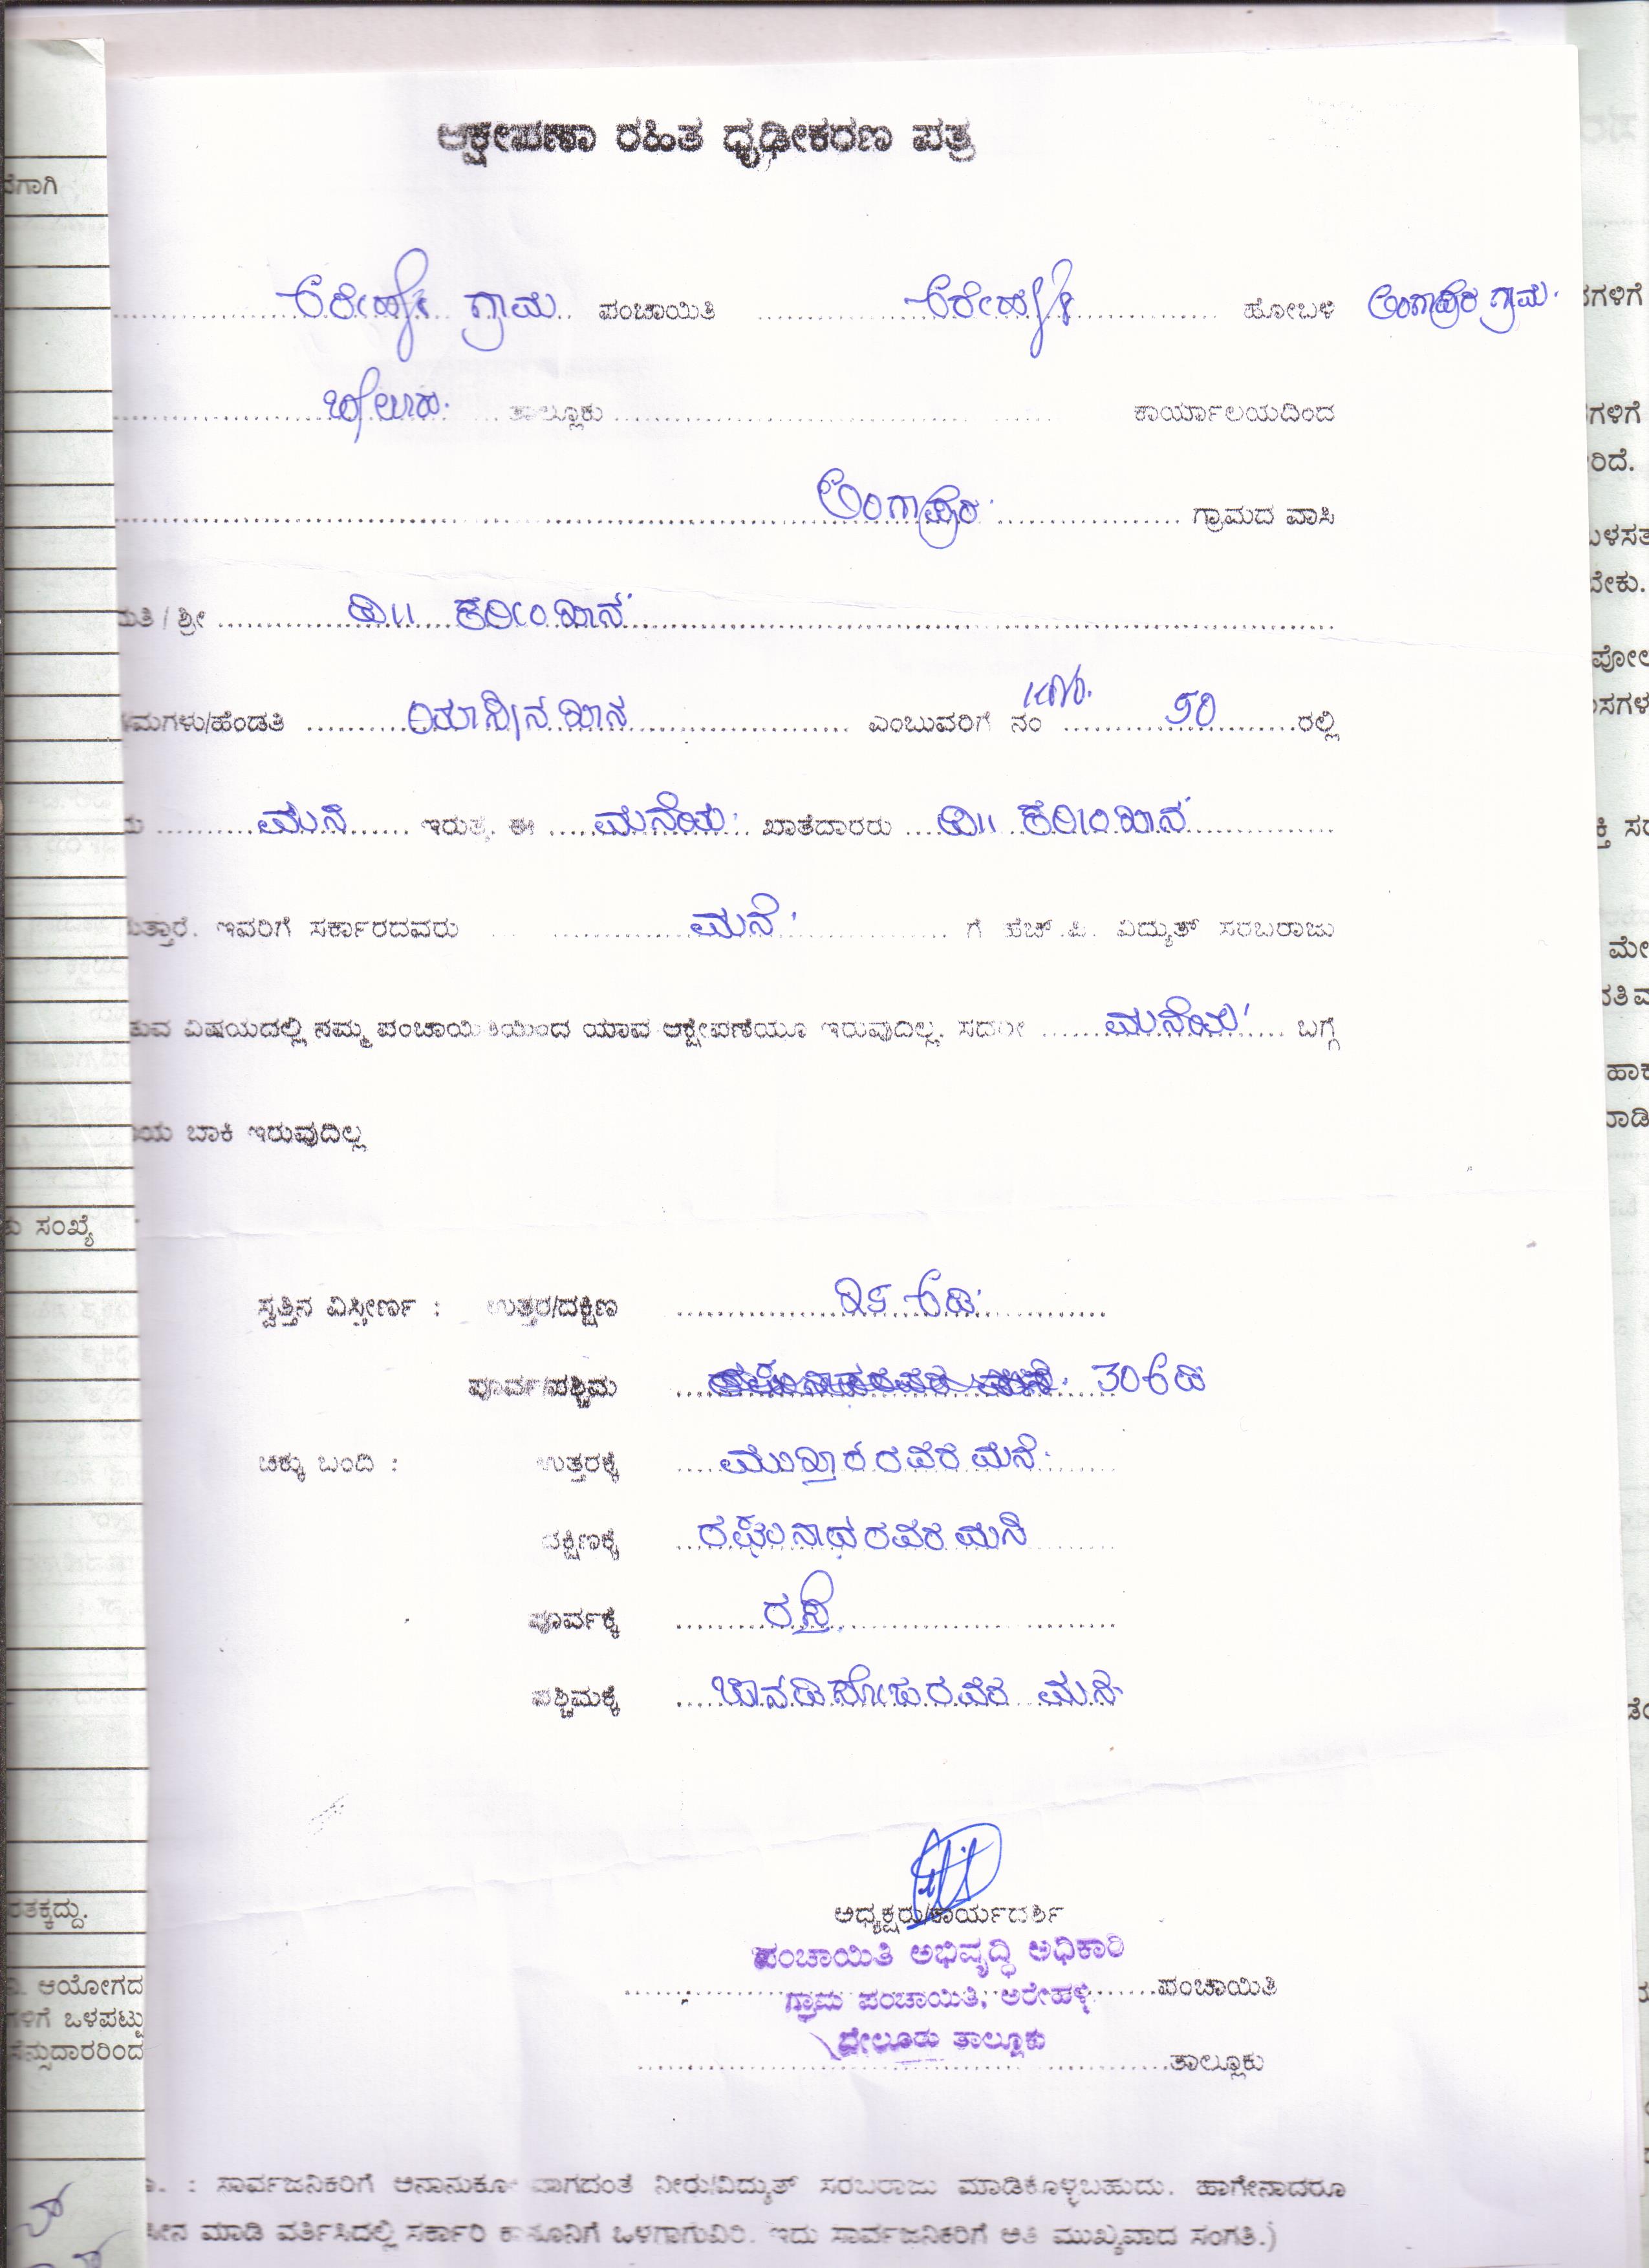 ಆಕ್ಷೇಪಣಾ ರಹಿತ ಧೃಢೀಕರಣ ಪತ್ರ
ಅರೇಹಳ್ಳಿ ಗ್ರಾಮ ಪಂಚಾಯಿತಿ ಅರೇಹಳ್ಳಿ ಹೋಬಳಿ ಅಂಗಾಪುರ ಗ್ರಾಮ.
ಬೇಲೂರು. ತಾಲ್ಲೂಕು ಕಾರ್ಯಾಲಯದಿಂದ
ಅಂಗಾಪುರ ಗ್ರಾಮದ ವಾಸಿ
ಮತಿ / ಶ್ರೀ ಕರೀಂ ಖಾನ್
ಮಗಳು/ಹೆಂಡತಿ ಯಾಸೀನ್ ಖಾನ್ ಎಂಬುವರಿಗೆ ನಂ 90 ರಲ್ಲಿ
ಮನೆ ಇರುತ್ತೆ. ಈ ಮನೆಯ ಖಾತೆದಾರರು ಕರೀಂಖಾನ್
ುತ್ತಾರೆ. ಇವರಿಗೆ ಸರ್ಕಾರದವರು ಮನೆ ಗೆ ಹೆಚ್.ಪಿ. ವಿದ್ಯುತ್ ಸರಬರಾಜು
ುವ ವಿಷಯದಲ್ಲಿ ನಮ್ಮ ಪಂಚಾಯಿತಿಯಿಂದ ಯಾವ ಆಕ್ಷೇಪಣೆಯೂ ಇರುವುದಿಲ್ಲ. ಸದರೀ ಮನೆಯ ಬಗ್ಗೆ
ಯ ಬಾಕಿ ಇರುವುದಿಲ್ಲ
ಸ್ವತ್ತಿನ ವಿಸ್ತೀರ್ಣ : ಉತ್ತರ/ದಕ್ಷಿಣ ಅಡಿ
ಪೂರ್ವ/ಪಶ್ಚಿಮ 30 ಅಡಿ
ಚಕ್ಕು ಬಂದಿ : ಉತ್ತರಕ್ಕೆ ಮುಖ್ತಾರ ರವರ ಮನೆ.
ದಕ್ಷಿಣಕ್ಕೆ ರಘುನಾಥ ರವರ ಮನೆ
ಪೂರ್ವಕ್ಕೆ ರಸ್ತೆ
ಪಶ್ಚಿಮಕ್ಕೆ ರವರ ಮನೆ
ಅಧ್ಯಕ್ಷರು/ಕಾರ್ಯದರ್ಶಿ
ಪಂಚಾಯಿತಿ ಅಭಿವೃದ್ಧಿ ಅಧಿಕಾರಿ
ಗ್ರಾಮ ಪಂಚಾಯಿತಿ, ಅರೇಹಳ್ಳಿ ಪಂಚಾಯಿತಿ
ಬೇಲೂರು ತಾಲ್ಲೂಕು
ತಾಲ್ಲೂಕು
: ಸಾರ್ವಜನಿಕರಿಗೆ ಅನಾನುಕೂಲವಾಗದಂತೆ ನೀರು/ವಿದ್ಯುತ್ ಸರಬರಾಜು ಮಾಡಿಕೊಳ್ಳಬಹುದು. ಹಾಗೇನಾದರೂ
ಸೀನ ಮಾಡಿ ವರ್ತಿಸಿದಲ್ಲಿ ಸರ್ಕಾರಿ ಕಾನೂನಿಗೆ ಒಳಗಾಗುವಿರಿ. ಇದು ಸಾರ್ವಜನಿಕರಿಗೆ ಅತಿ ಮುಖ್ಯವಾದ ಸಂಗತಿ.)